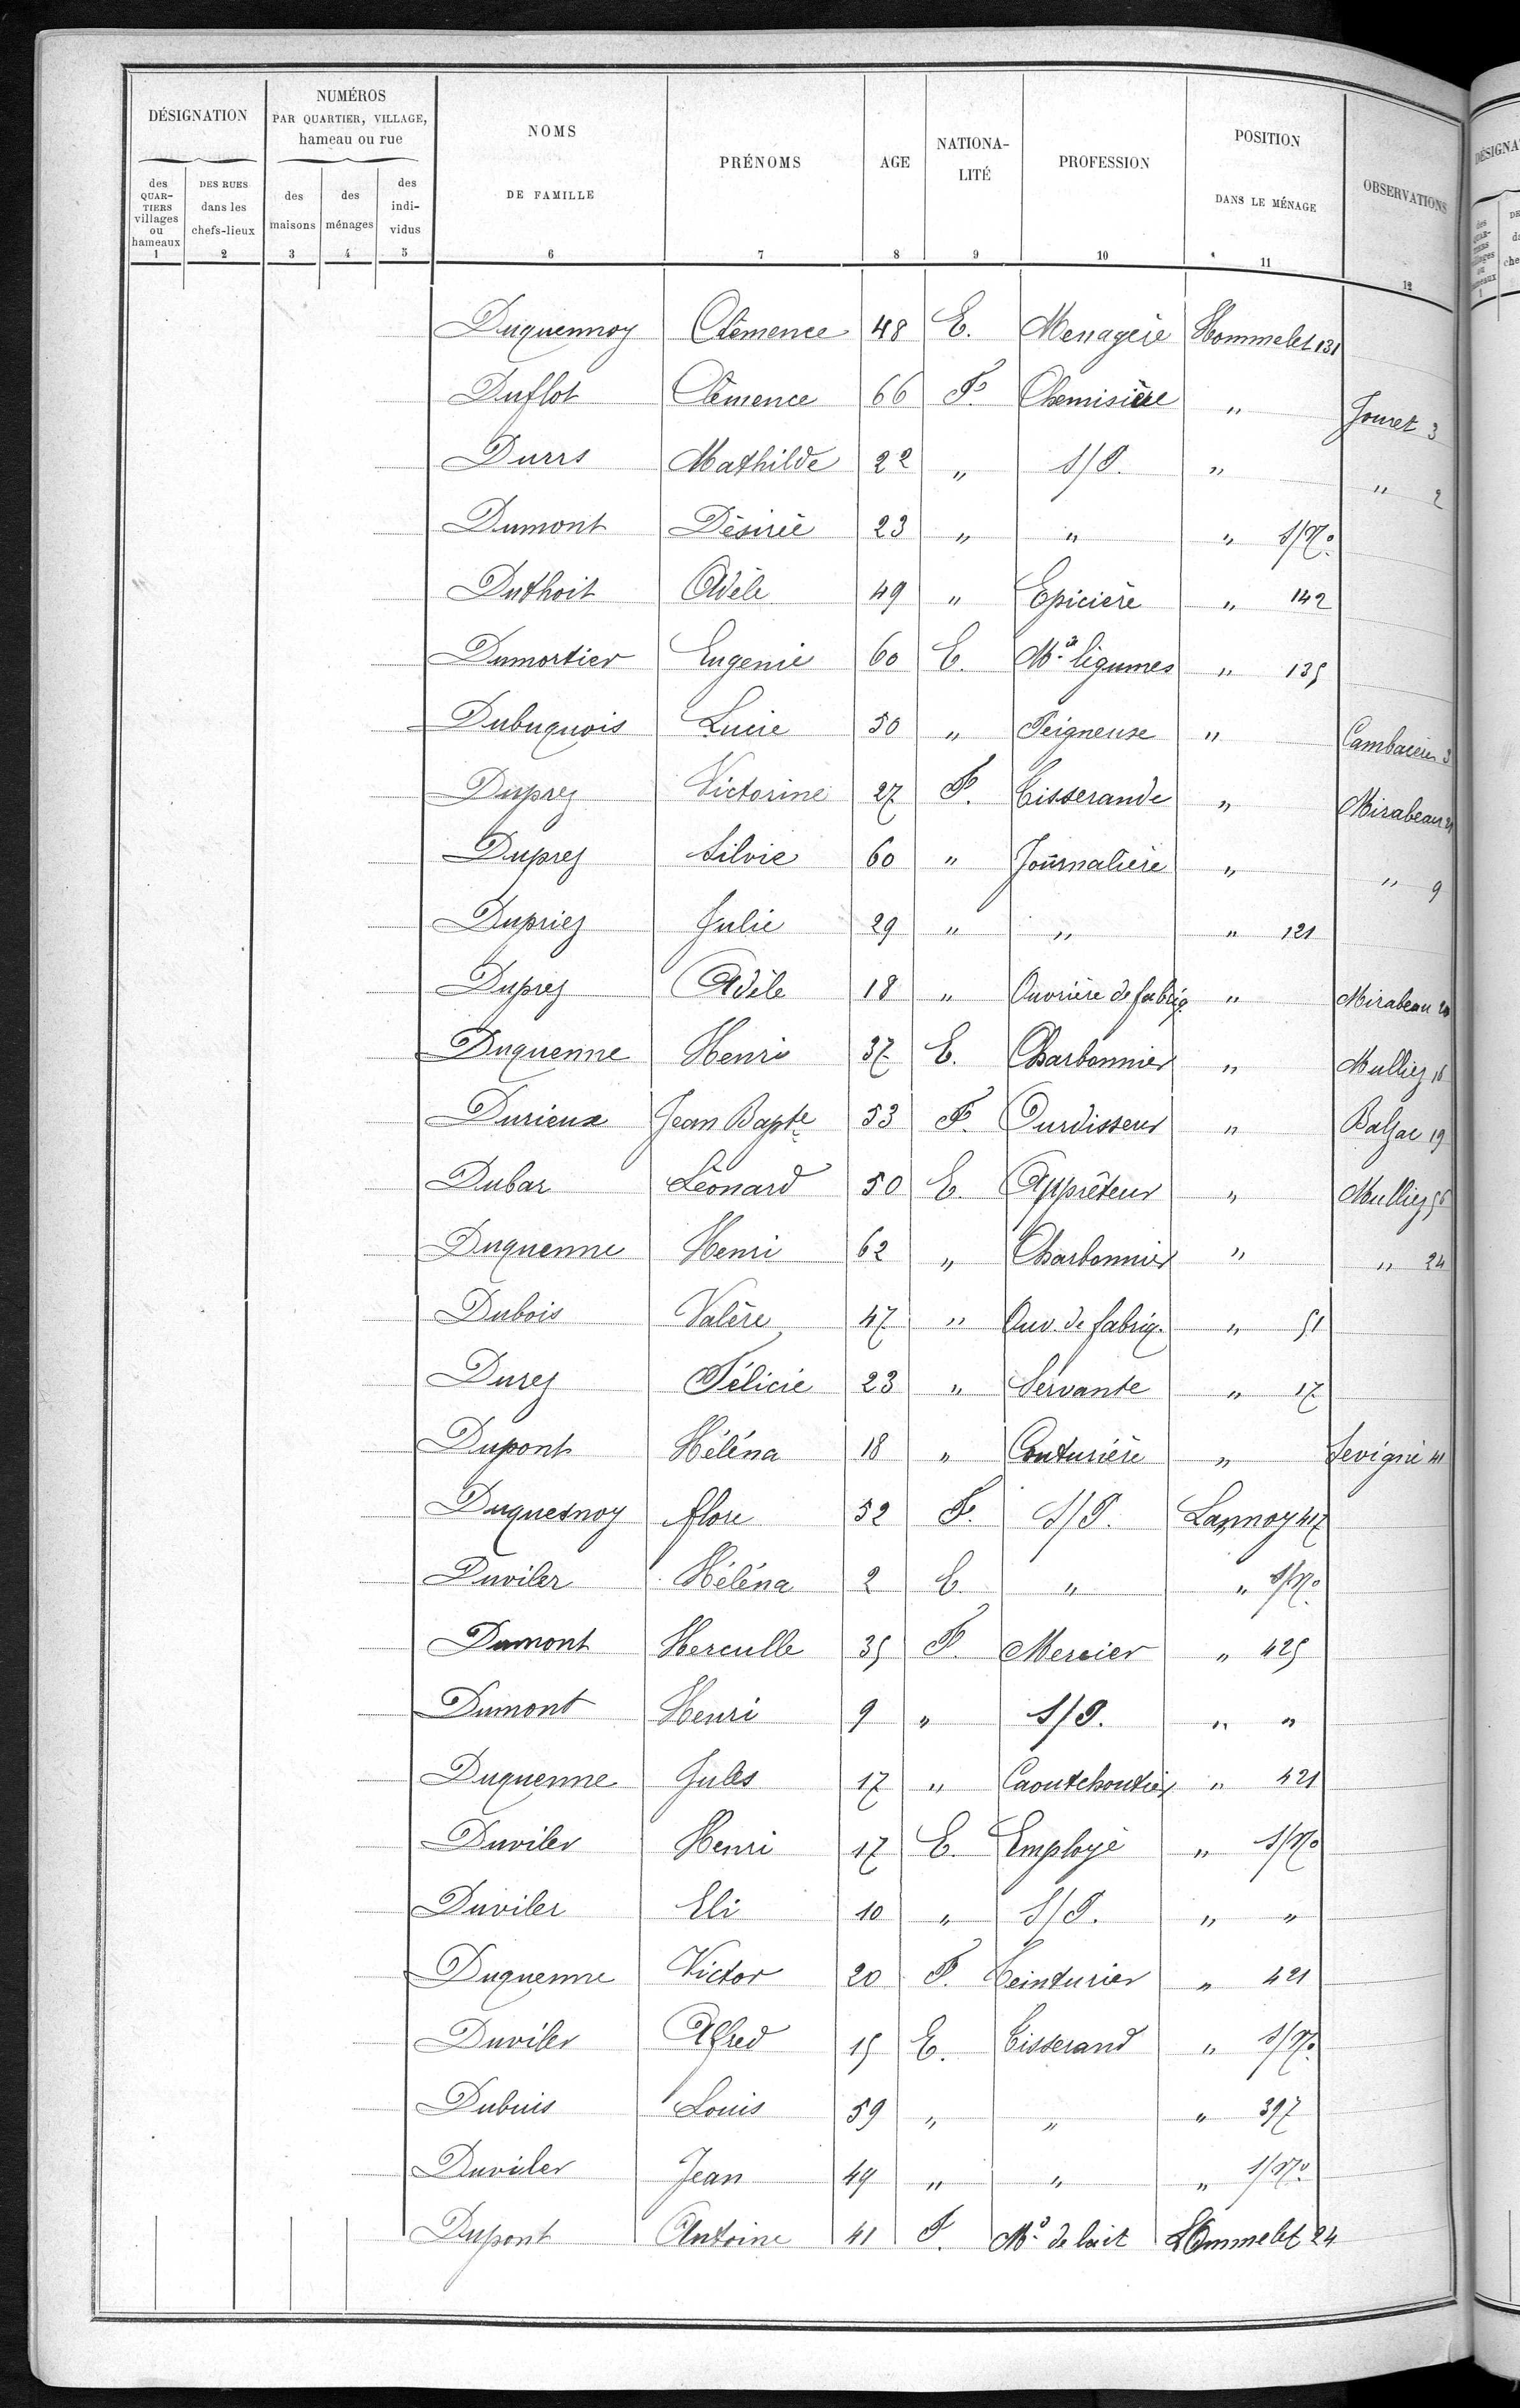 DÉSIGNATION NUMÉROS PAR QUARTIER, VILLAGE, hameau ou rue NOMS DE FAMILLE PRÉNOMS AGE NATIONA-LITÉ PROFESSION POSITION DANS LE MÉNAGE OBSERVATIONS
des QUAR-TIERS villages ou hameaux DES RUES dans les chefs-lieux des maisons des ménages des indi-vidus
1 2 3 4 5 6 7 8 9 10 11 12
Duquennoy Clémence 48 E. Menagère Hommelet 131
Duflot Clémence 66 F. Chemisière " Jouret 3
Durrs Mathilde 22 " S/P. " " 2
Dumont Désirée 23 " " " S/No
Duthoit Adèle 49 " Epicière " 142
Dumortier Eugenie 60 E. Mde légumes " 135
Dubuquois Lucie 50 " Peigneuse " 
Duprez Victorine 27 F. Tisserande " Mirabeau 21
Duprez Silvie 60 " Journalière " " 9
Dupriez Julie 29 " " " 121
Duprez Adèle 18 " Ouvrière de fabriq. " Mirabeau 20
Duquenne Henri 37 E. Charbonnier " Mulliez 16
Durieux Jean Bapte 53 F. Ourdisseur " Balzac 19
Dubar Léonard 50 E. Apprêteur " Mulliez 56
Duquenne Henri 62 " Charbonnier " " 24
Dubois Valère 47 " Ouv. de fabriq. " 51
Durez Félicie 23 " Servante " 17
Dupont Héléna 18 " Couturière " Sevigné 41
Duquesnoy flore 52 F. S/P. Lannoy 417
Duviler Héléna 2 E. " " S/No
Dumont Herculle 35 F. Mercier " 425
Dumont Henri 9 " S/P. " "
Duquenne Jules 17 " Caoutchoutier " 421
Duviler Henri 17 E. Employé " S/No
Duviler Eli 10 " S/P. " "
Duquenne Victor 20 F. Teinturier " 421
Duviler Alfred 15 E. Tisserand " S/No
Dubuis Louis 59 " " " 397
Duviler Jean 49 " " " S/No
Dupont Antoine 41 F. Md de lait Hommelet 24